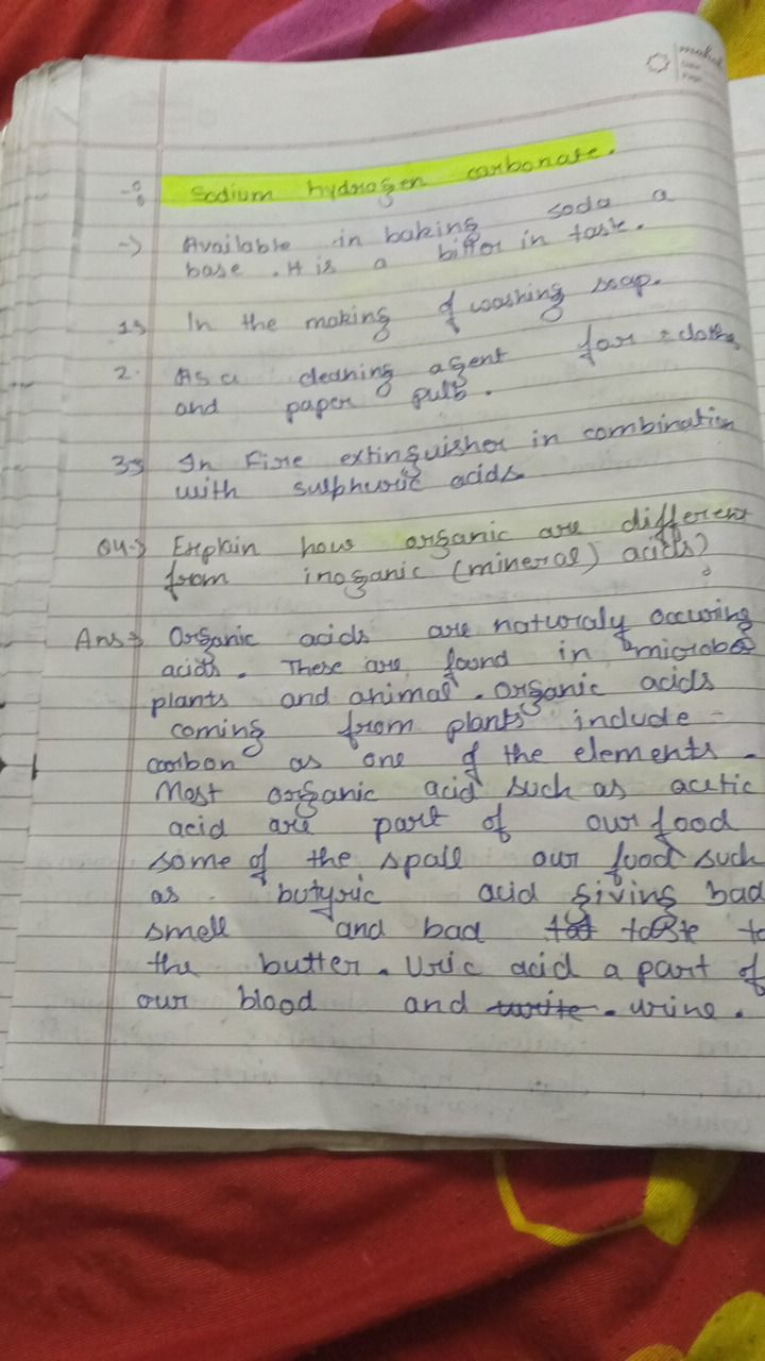 Sodium hydrogen carbonate.
-> Available in baking soda a
base . It is a bitter in taste.
1) In the making of washing soap.
2. As a cleaning agent for clothe
and paper pulb .
3) In Fire extinguisher in combination
with sulphuric acids
Q4.) Explain how organic are different
from inoganic (mineral) acids?
Ans Organic acids are naturaly occuring
acids. These are found in microbes
plants and animal. organic acids
coming from plants include -
carbon as one of the elements.
Most organic acid such as acetic
acid are part of our food
some of the spall our food such
as butyric acid giving bad
smell and bad taste to
the butter. Uric acid a part of
our blood and write . urine .